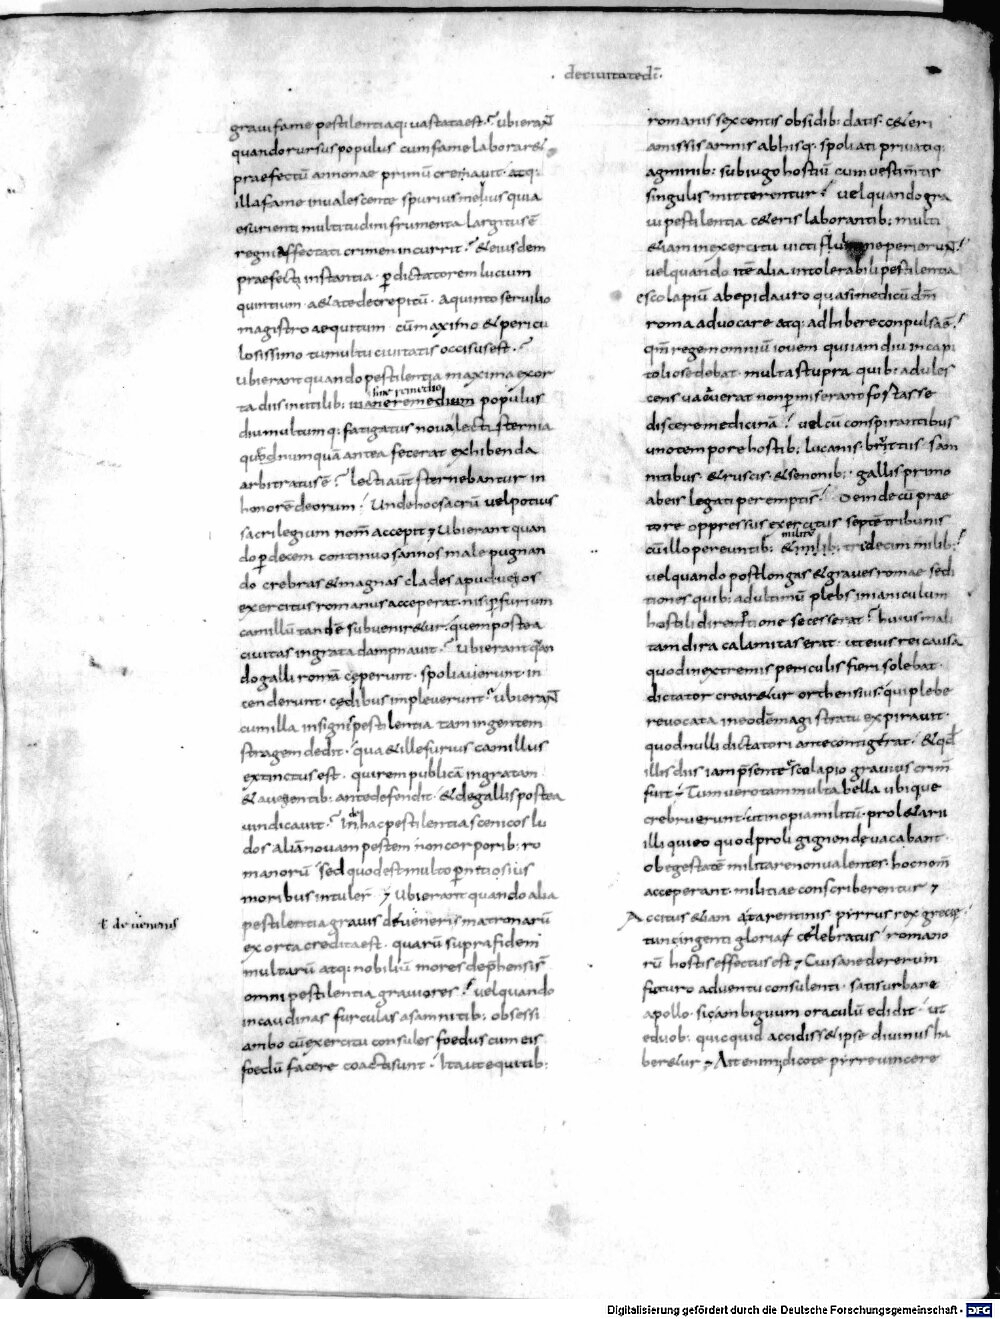 deciuitatedī·
graui fame pestilentiaq; uastata est? Ubierañ
quando rursus populus cum fame laboraret
praefectū annonae primū creauit· atq;
illa fame inualescente spurius melius quia
esurienti multitudini frumenta largitus ē
regni affectati crimen incurrit? & eiusdem
praefecti instantia· p dictatorem lucium
quintium· aetate decrepitū· a quinto seruilio
magistro aequitum· cū maximo & pericu
losissimo tumultu ciuitatis occisus est·?
Ubi erant quando pestilentia maxima exor
sine remedio
ta diis inutilib: remedium populus
diu multumq; fatigatus noua lectisternia
quod numquā antea fecerat exhibenda
arbitratus ē? lecti aūt sternebantur in
honorē deorum! Unde hoc sacrū uel potius
sacrilegium nom̄ accepit; Ubierant quan
do p decem continuos annos male pugnan
do crebras & magnas clades apud ueios
exercitus romanus acceperat· nisi p furium
camillū tandē subueniretur· quem postea
ciuitas ingrata dampnauit·? Ubierant quan
do galli romā ceperunt· spoliauerunt· in
cenderunt· cedibus impleuerunt? ubierañ
cum illa insignis pestilentia tam ingentem
stragem dedit· qua & ille furius camillus
extinctus est· qui rem publicā ingratam
& a uegentib: ante defendit· & de gallis postea
uindicauit·? In hac pestilentia scenicos lu
dos aliā nouam pestem non corporib: ro
manorū! sed quod est multo pnitiosius
moribus intulerŧ ; Ubierant quando alia
ł de uenenis
pestilentia grauis de ueneris matronarū
exorta credita est· quarū supra fidem
multarū atq; nobiliū mores dephensi s̄
omni pestilentia grauiores? uel quando
in caudinas furculas a samnitib: obsessi
ambo cū exercitu consules foedus cum eis
foedū facere coacti sunt· Ita ut equitib:
romanis sexcentis obsidib: datis· c&eri
amissis armis abhisq· spoliati priuatiq·
agminib: subiugo hostiū cum uestim̄tis
singulis mitterentur? uel quando gra
ui pestilentia c&eris laborantib: multi
&iam in exercitu icti fulmine perierun̄?
uel quando itē alia intolerabili pestilentia
escolapiū ab epidauro quasi medicū dm̄
roma aduocare atq· adhibere conpulsa ē?
qm̄ regem omniū iouem qui iam diu in capi
tolio sedebat· multa stupra quib: adules
cens uacauerat non pmiserant fortasse
discere medicinā? uel cū conspirantibus
uno tempore hostib: lucanis· brittiis· sam
nitibus· &ruscis· & senonib:· gallis primo
ab eis legati perempti s̄! Deinde cū prae
tore oppressus exercitus septē tribunis
militū
cū illo pereuntib: & milib: tridecim milib:?
uel quando post longas & graues romae sedi
tiones quib: ad ultimū plebs in ianiculum
hostili diremptione secesserat? huius mali
tam dira calamitas erat· ut eius rei causa
quod in extremis periculis fieri solebat·
dictator crear&ur orthensius· qui plebe
reuocata in eodē magistratu expirauit·
quod nulli dictatori ante contigerat· & qđ
illis diis iam psente escolapio grauius crim̄
fuit; Tum uero tam multa bella ubique
crebruerunt· ut inopia militū· prol&arii
illi qui eo quod proli gignende uacabant·
ob egestatē militare non ualentes· hoc nom̄
acceperant· militiae conscriberentur ;
Accitus &iam a tarentinis pyrrus rex grecię
tunc ingenti gloria celebratus! romano
rū hostis effectus est; Cui sane de rerum
futuro aduentu consulenti· satis urbane
apollo· sic ambiguum oraculū edidit! ut
e duob: quicquid accidiss& ipse diuinus ha
ber&ur ; Ait enim; dico te pyrre uincere
Digitalisierung gefördert durch die Deutsche Forschungsgemeinschaft - DFG